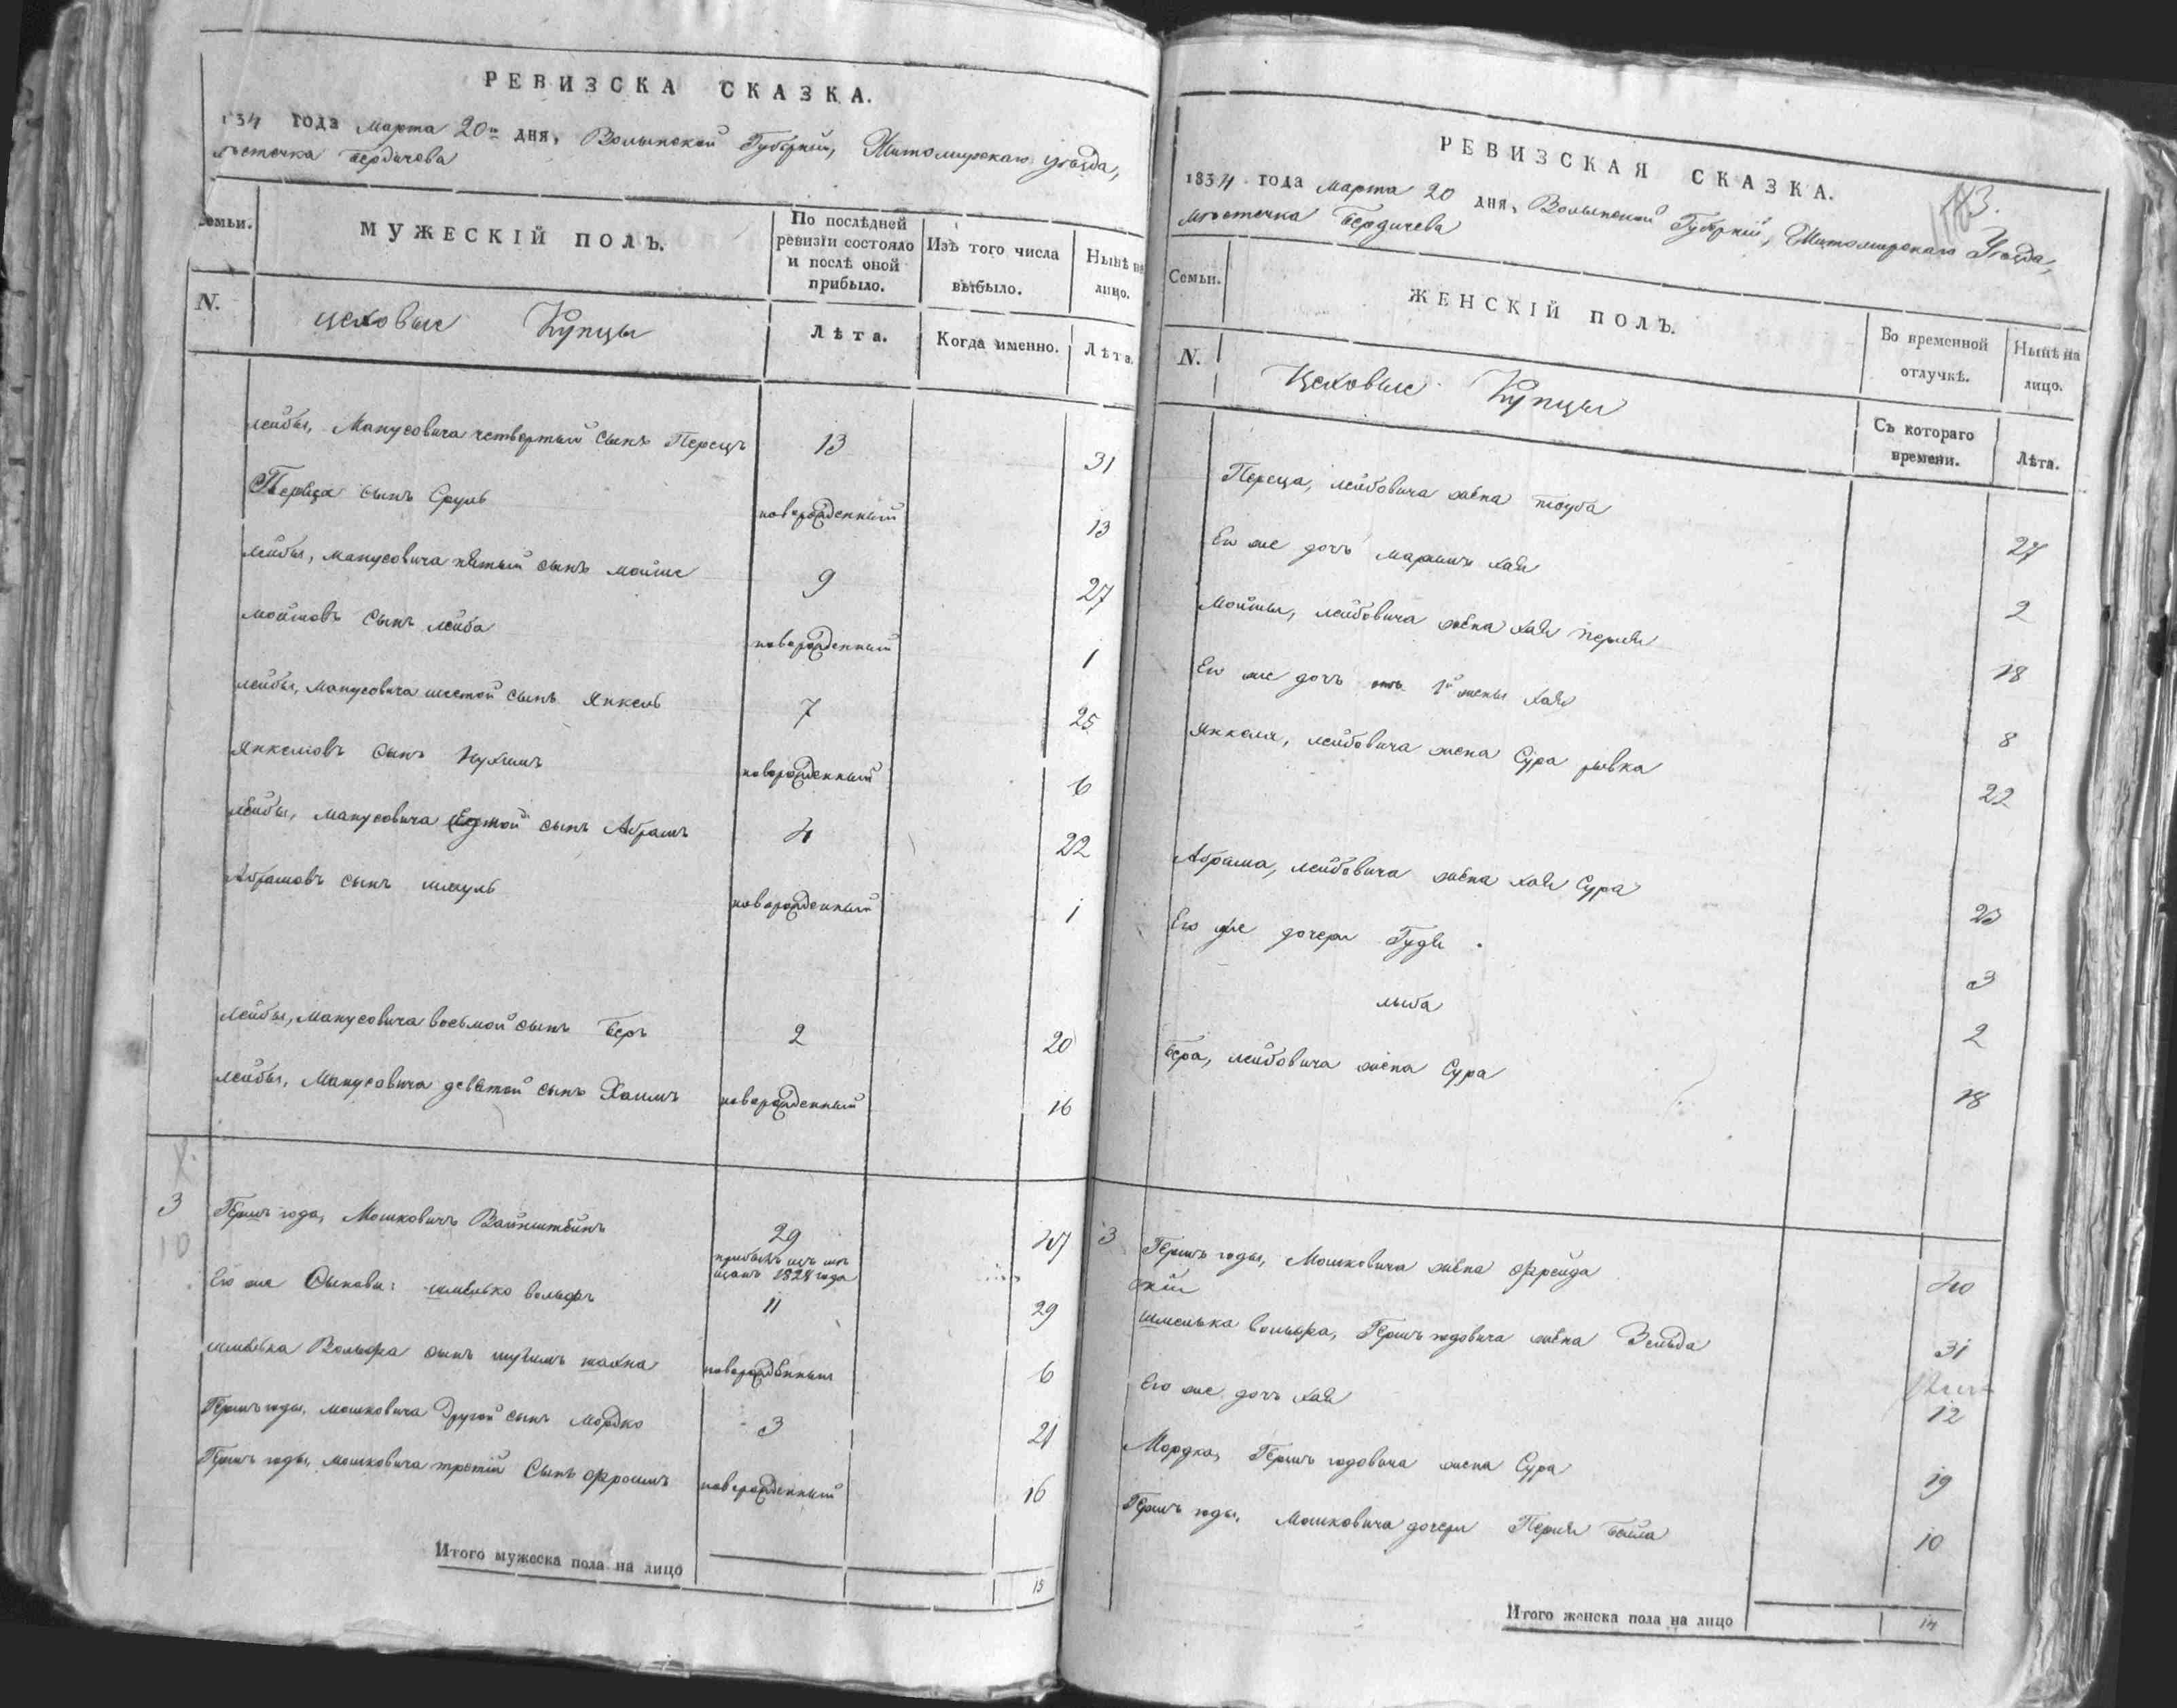 РЕВИЗСКА СКАЗКА.
1834 года Марта 20го дня, Волынской Губерніи, Житомирскаго уѣзда,
мѣстечка Бердичева
Семьи.
МУЖЕСКІЙ ПОЛЪ.
По послѣдней ревизіи состояло и послѣ оной прибыло.
Изъ того числа выбыло.
Нынѣ на лицо.
N.
цеховые Купцы
Лѣта.
Когда именно.
Лѣта.
Лейбы, Манусовича четвертый сынъ Перецъ 13 31
Переца сынъ Сруль новорожденный 13
Лейбы, Манусовича пятый сынъ Мойше 9 27
Мойшовъ сынъ Лейба новорожденный 1
Лейбы, Манусовича шестой сынъ Янкель 7 25
Янкелювъ сынъ Нухимъ новорожденный 6
Лейбы, Манусовича седмой сынъ Абрамъ 4 22
Абрамовъ сынъ Шмуль новорожденный 1
Лейбы, Манусовича восьмой сынъ Беръ 2 20
Лейбы, Манусовича девятой сынъ Хаимъ новорожденный 16
3 Гершъ года, Мошковичъ Вайнштейнъ 29 47
10
прибылъ изъ мѣщанъ 1828 года
Его же Сыновья: Шмелько Вольфъ 11 29
Шмелька Вольфа сынъ нахна новорожденный 6
Гершъ годы, Мошковича Другой сынъ Мордко 3 21
Гершъ годы, Мошковича третій Сынъ Фроимъ новорожденный 16
Итого мужеска пола на лицо 15
РЕВИЗСКАЯ СКАЗКА.
113.
1834 года Марта 20 дня, Волынской Губерніи, Житомирскаго Уѣзда,
мѣстечка Бердичева
Семьи.
ЖЕНСКІЙ ПОЛЪ.
Во временной отлучкѣ.
Нынѣ на лицо.
N.
Цеховые Купцы
Съ котораго времени.
Лѣта.
Переца, Лейбовича жена тауба 27
Его же дочь хая 2
Мойшы, Лейбовича жена хая перля 18
Его же дочь отъ 1й жены хая 8
Янкеля, Лейбовича жена Сура рывка 22
Абрама, Лейбовича жена хая Сура 23
Его же дочери Гудя 3
Лыба 2
Бера, Лейбовича жена Сура 18
3 Гершъ годы, Мошковича жена Фрейда 40
Шмелька Вольфа, Гершъ годовича жена Зельда 31
Его же дочь хая 12
Мордка, Гершъ годовича жена Сура 19
Гершъ годы, Мошковича дочери Перля бейла 10
Итого женска пола на лицо 14